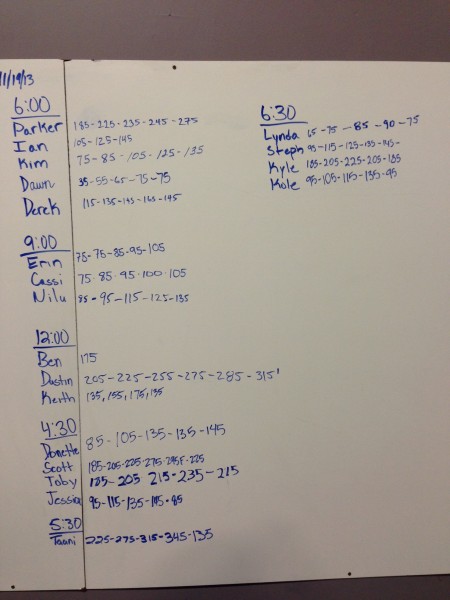 11/19/13
6:00
Parker 185-225-235-245-275
Ian 105-125-145
Kim 75-85-105-125-135
Dawn 35-55-65-75-75
Derek 115-135-145-165-195
9:00
Erin 75-75-85-95-105
Cassi 75-85-95-100-105
Nilu 85-95-115-125-135
12:00
Ben 175
Dustin 205-225-255-275-285-315'
Keith 135, 155, 175, 135
4:30
Donette 85-105-135-135-145
Scott 185-205-225-275-295F-225
Toby 185-205 215-235-215
Jessica 95-115-135-115-85
5:30
Taani 225-275-315-345-135
6:30
Lynda 65-75-85-90-75
Steph 95-115-125-135-145-
Kyle 185-205-225-205-185
Kole 95-105-115-135-95